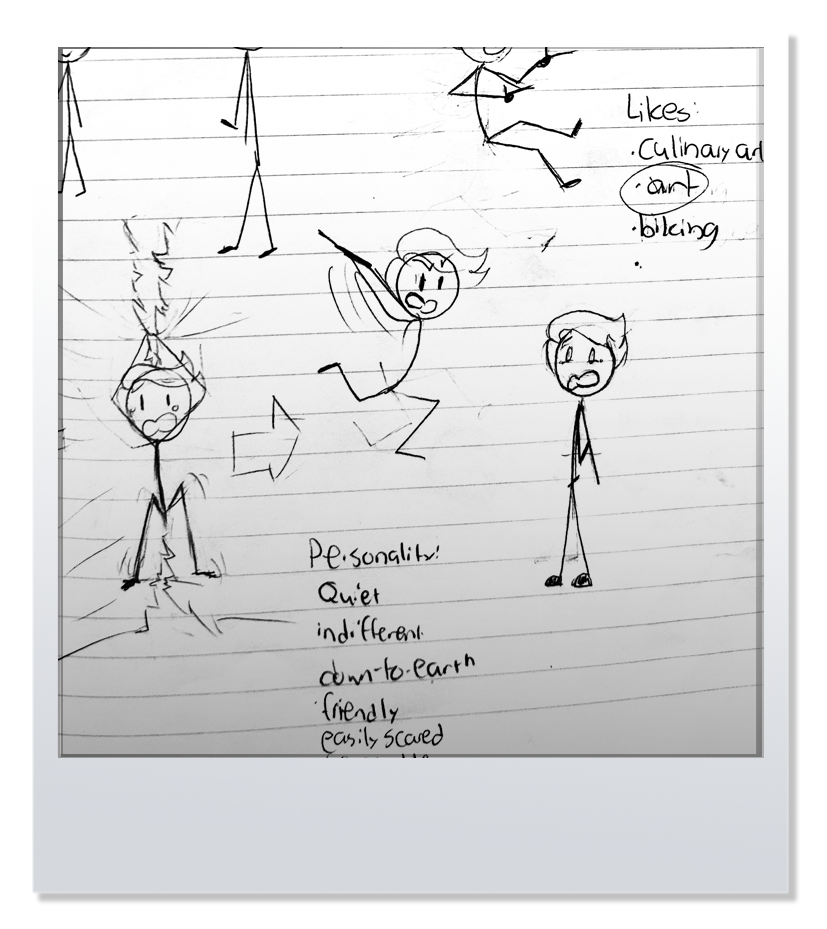 Likes:
·Culinary art
·art
·biking
·
Personality:
Quiet
indifferent
down-to-earth
·friendly
easily scared